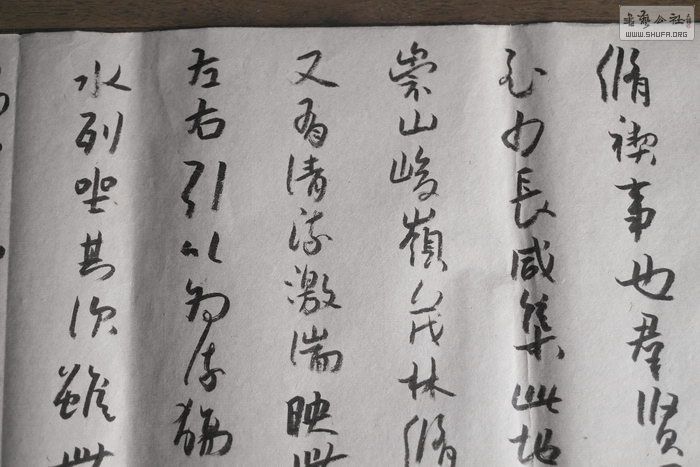 脩禊事也羣贤
至少長咸集此地
崇山峻嶺茂林脩
又有清流激湍映
左右引以為流觴
水列坐其次雖無
书艺公社
WWW.SHUFA.ORG